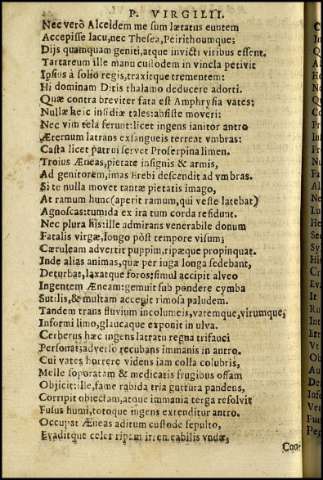 P. VIRGILII.
Nec verò Alcidem me sum lætatus euntem
Accepisse lacu, nec Thesea, Peirithoumque;
Dijs quamquam geniti, atque invicti viribus essent.
Tartareum ille manu custodem in vincla petivit
Ipsius à solio regis, traxitque trementem:
Hi dominam Ditis thalamo deducere adorti.
Quæ contra breviter fata est Amphrysia vates:
Nullæ heic insidiæ tales: absiste moveri:
Nec vim tela ferunt: licet ingens ianitor antro
Æternum latrans exsangueis terreat vmbras:
Casta licet patrui servet Proserpina limen.
Troius Æneas, pietate insignis & armis,
Ad genitorem, imas Erebi descendit ad vmbras.
Si te nulla movet tantæ pietatis imago,
At ramum hunc (aperit ramum, qui veste latebat)
Agnoscas: tumida ex ira tum corda resident.
Nec plura his: ille admirans venerabile donum
Fatalis virgæ, longo pòst tempore visum;
Cæruleam advertit puppim, ripæque propinquat.
Inde alias animas, quæ per iuga longa sedebant,
Deturbat, laxatque foros: simul accipit alveo
Ingentem Æneam: gemuit sub pondere cymba
Sutilis, & multam accepit rimosa paludem.
Tandem trans fluvium incolumeis, vatemque, virumque,
Informi limo, glaucaque exponit in ulva.
Cerberus hæc ingens latratu regna trifauci
Personat, adverso recubans immanis in antro.
Cui vates horrere videns iam colla colubris,
Melle soporatam & medicatis frugibus offam
Obijcit: ille, fame rabida tria guttura pandens,
Corripit obiectam, atque immania terga resolvit
Fusus humi, totoque ingens extenditur antro.
Occupat Æneas aditum custode sepulto,
Evaditque celer ripam irremeabilis vndæ,